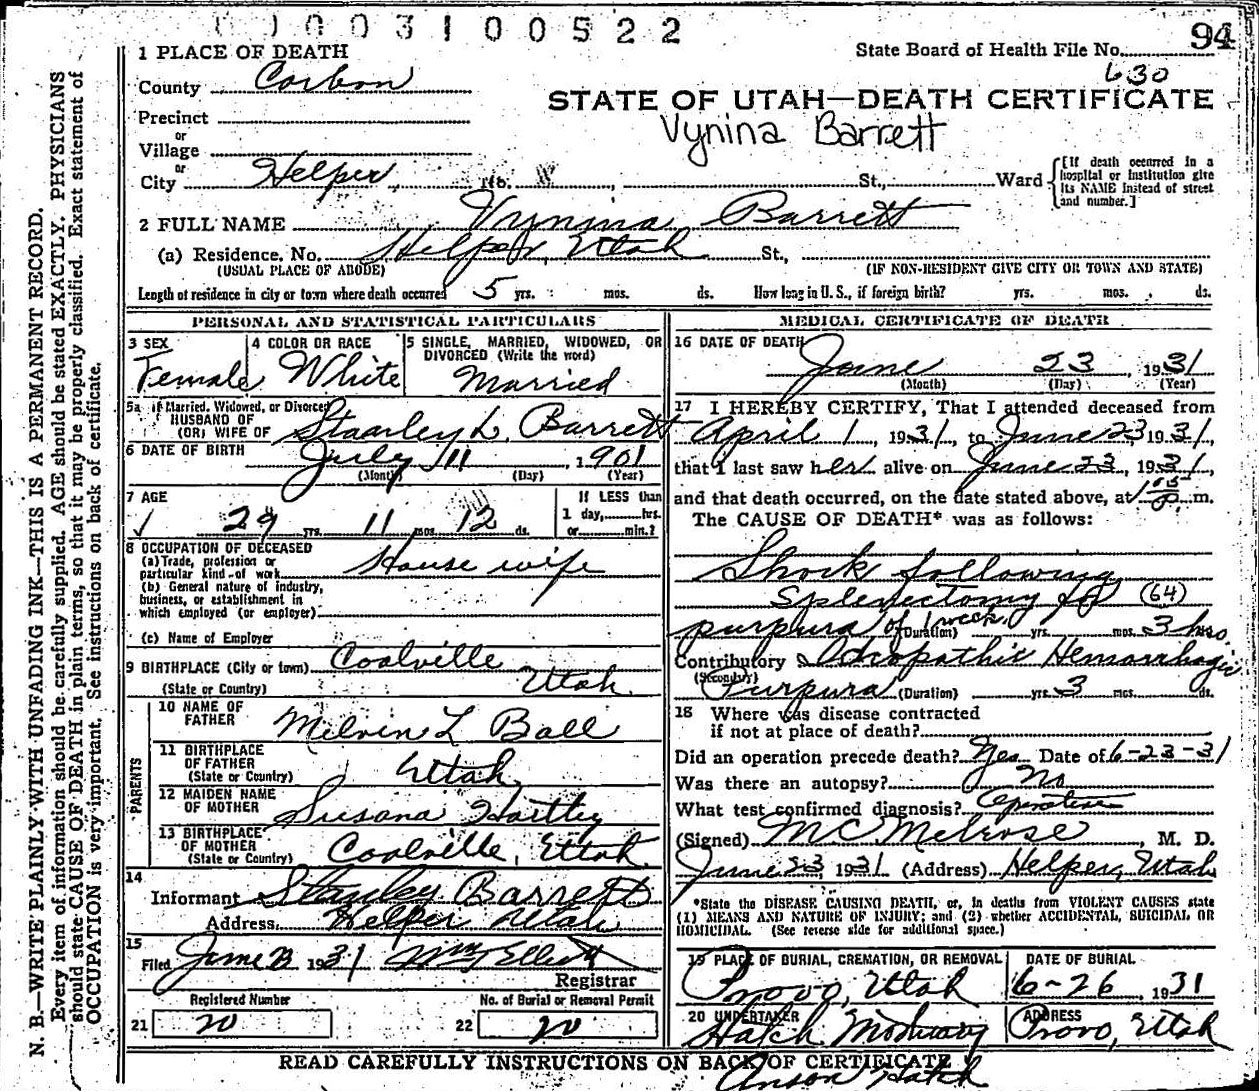 0003100522
94
1 PLACE OF DEATH
State Board of Health File No.
630
County Carbon
STATE OF UTAH—DEATH CERTIFICATE
Vynina Barrett
Precinct
or
Village
or
City Helper, No. St., Ward
[If death occurred in a hospital or institution give its NAME instead of street and number.]
2 FULL NAME Vynina Barrett
(a) Residence. No. Helper, Utah St.,
(USUAL PLACE OF ABODE) (IF NON-RESIDENT GIVE CITY OR TOWN AND STATE)
Length of residence in city or town where death occurred 5 yrs. mos. ds. How long in U. S., if foreign birth? yrs. mos. ds.
PERSONAL AND STATISTICAL PARTICULARS
3 SEX
Female
4 COLOR OR RACE
White
5 SINGLE, MARRIED, WIDOWED, OR DIVORCED (Write the word)
Married
5a If Married, Widowed, or Divorced
HUSBAND OF
(OR) WIFE OF Stanley L. Barrett
6 DATE OF BIRTH July 11 1901
(Month) (Day) (Year)
7 AGE
29 yrs. 11 mos. 12 ds.
If LESS than
1 day, hrs.
or min.?
8 OCCUPATION OF DECEASED
(a) Trade, profession or
particular kind of work House wife
(b) General nature of industry,
business, or establishment in
which employed (or employer)
(c) Name of Employer
9 BIRTHPLACE (City or town) Coalville
(State or Country) Utah
PARENTS
10 NAME OF
FATHER Melvin L Ball
11 BIRTHPLACE
OF FATHER
(State or Country) Utah
12 MAIDEN NAME
OF MOTHER Susana Hartley
13 BIRTHPLACE
OF MOTHER
(State or Country) Coalville, Utah.
14
Informant Stanley Barrett
Address Helper Utah
15
Filed June 1931 Elliott
Registrar
Registered Number
21 20
No. of Burial or Removal Permit
22 20
MEDICAL CERTIFICATE OF DEATH
16 DATE OF DEATH
June 23, 1931
(Month) (Day) (Year)
17 I HEREBY CERTIFY, That I attended deceased from
April 1, 1931, to June 23 1931,
that I last saw her alive on June 23, 1931,
and that death occurred, on the date stated above, at m.
The CAUSE OF DEATH* was as follows:
Shock following
Splenectomy for (64)
purpura of 1 week (Duration) yrs. mos. 3 hrs.
Contributory Idiopathic Hemorrhagic
(Secondary)
Purpura (Duration) yrs. 3 mos. ds.
18 Where was disease contracted
if not at place of death?
Did an operation precede death? Yes Date of 6-23-31
Was there an autopsy? No
What test confirmed diagnosis? Operation
(Signed) M C Melrose, M. D.
June 23 1931 (Address) Helper, Utah
*State the DISEASE CAUSING DEATH, or, in deaths from VIOLENT CAUSES state
(1) MEANS AND NATURE OF INJURY; and (2) whether ACCIDENTAL, SUICIDAL OR
HOMICIDAL. (See reverse side for additional space.)
19 PLACE OF BURIAL, CREMATION, OR REMOVAL
Provo, Utah
DATE OF BURIAL
6-26, 1931
20 UNDERTAKER
Hatch Mortuary
ADDRESS
Provo, Utah
READ CAREFULLY INSTRUCTIONS ON BACK OF CERTIFICATE
Anson Hatch
N. B.—WRITE PLAINLY WITH UNFADING INK—THIS IS A PERMANENT RECORD.
Every item of information should be carefully supplied. AGE should be stated EXACTLY. PHYSICIANS
should state CAUSE OF DEATH in plain terms, so that it may be properly classified. Exact statement of
OCCUPATION is very important. See instructions on back of certificate.